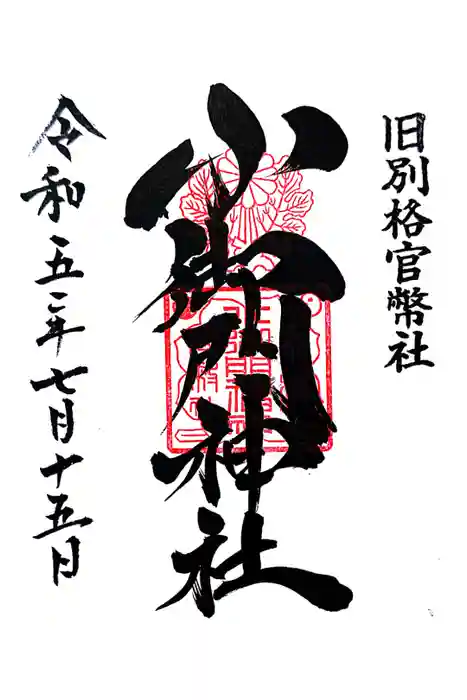 旧別格官幣社
小御門神社
令和五年七月十五日